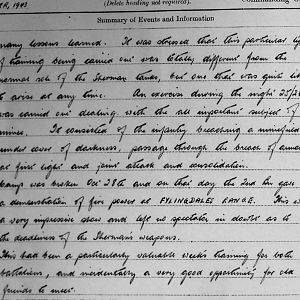 ER, 1943 (Delete heading not required). Commanding O
Summary of Events and Information
many lessons learned. It was stressed that this particular ty
of training being carried out was totally different from the
normal role of the Sherman tanks, but one that was quite lik
to arise at any time. An exercise during the night 25/26
was carried out dealing with the all important subject of
mines. It consisted of the infantry breaching a minefield
under cover of darkness, passage through the breach of armou
at first light and joint attack and consolidation.
Camp was broken Oct 28th and on that day the 2nd Bn gave
a demonstration of fire power at FYLINGDALES RANGE. This w
a very impressive show and left no spectator in doubt as to
the deadliness of the Sherman's weapons.
This had been a particularly valuable weeks training for both
battalions, and incidentally a very good opportunity for old
friends to meet.